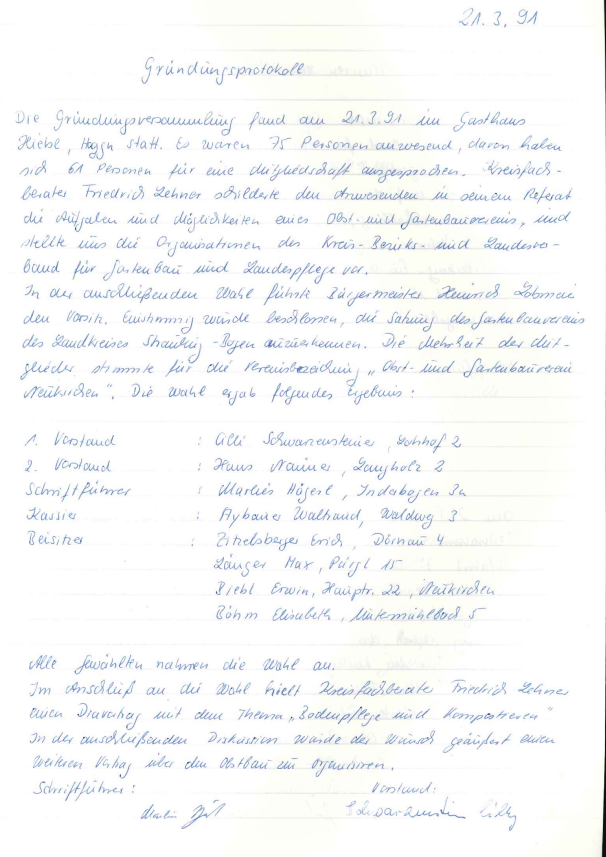 21.3.91
Gründungsprotokoll
Die Gründungsversammlung fand am 21.3.91 im Gasthaus
Hiebl, Haggn statt. Es waren 75 Personen anwesend, davon haben
sich 61 Personen für eine Mitgliedschaft ausgesprochen. Kreisfach-
berater Friedrich Lehner schilderte den Anwesenden in seinem Referat
die Aufgaben und Möglichkeiten eines Obst- und Gartenbauvereins, und
stellte uns die Organisationen des Kreis- Bezirks- und Landesver-
band für Gartenbau und Landespflege vor.
In der anschließenden Wahl führte Bürgermeister Heinrich Lobmeier
den Vorsitz. Einstimmig wurde beschlossen, die Satzung des Gartenbauvereins
des Landkreises Straubing-Bogen anzuerkennen. Die Mehrheit der Mit-
glieder stimmte für die Vereinsbezeichnung „Obst- und Gartenbauverein
Neukirchen". Die Wahl ergab folgendes Ergebnis:
1. Vorstand : Cilli Schwarzensteiner, Lohhof 2
2. Vorstand : Hans Nainer, Langholz 2
Schriftführer : Marlies Högerl, Inderbogen 3a
Kassier : Aybauer Waltraud, Waldweg 3
Beisitzer : Zitzelsberger Erich, Dörnau 4
Länger Max, Pürgl 15
Biebl Erwin, Hauptr. 22, Neukirchen
Böhm Elisabeth, Untermühlbach 5
Alle Gewählten nahmen die Wahl an.
Im Anschluß an die Wahl hielt Kreisfachberater Friedrich Lehner
einen Diavortrag mit dem Thema „Bodenpflege und Kompostieren"
In der anschließenden Diskussion wurde der Wunsch geäußert einen
weiteren Vortrag über den Obstbau zu organisieren.
Schriftführer: Vorstand:
Schwarzenstein Cilly